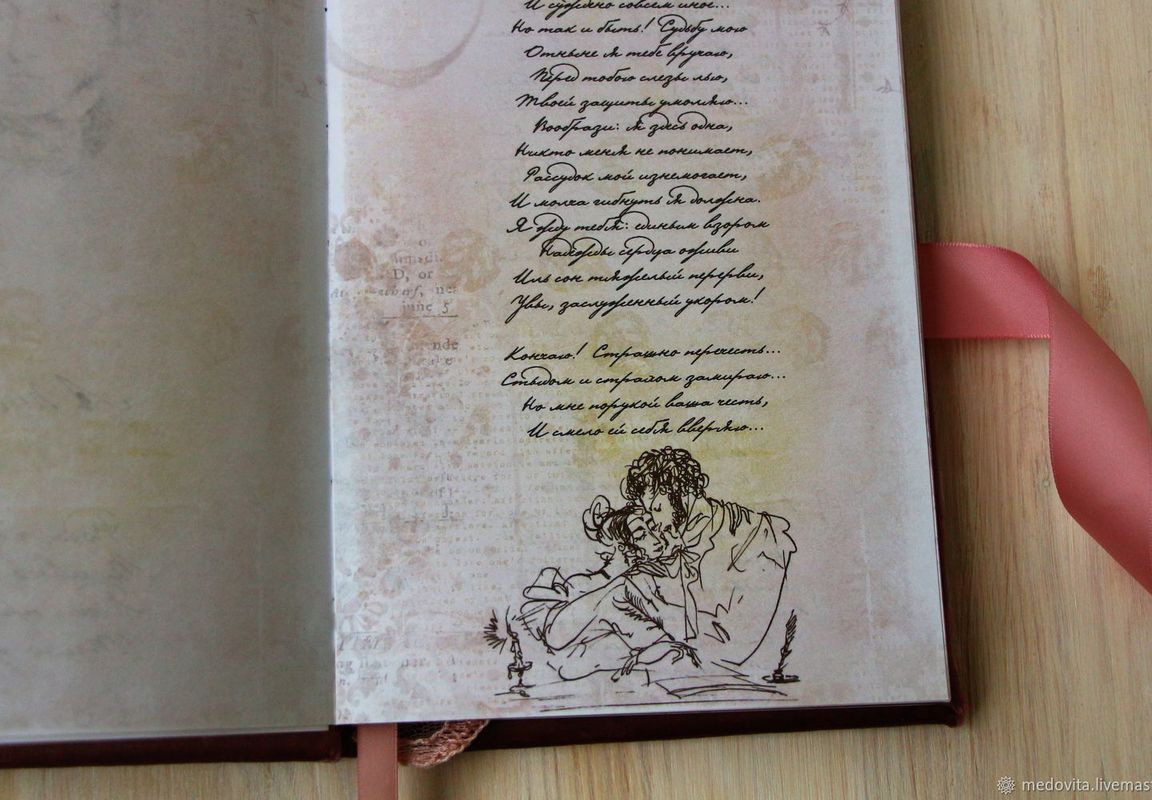 И суждено совсем иное...
Но так и быть! Судьбу мою
Отныне я тебе вручаю,
Перед тобою слезы лью,
Твоей защиты умоляю...
Вообрази: я здесь одна,
Никто меня не понимает,
Рассудок мой изнемогает,
И молча гибнуть я должна.
Я жду тебя: единым взором
Надежды сердца оживи
Иль сон тяжелый перерви,
Увы, заслуженный укором!
Кончаю! Страшно перечесть...
Стыдом и страхом замираю...
Но мне порукой ваша честь,
И смело ей себя вверяю...
D, or
june 5
nde
medovita.livemas